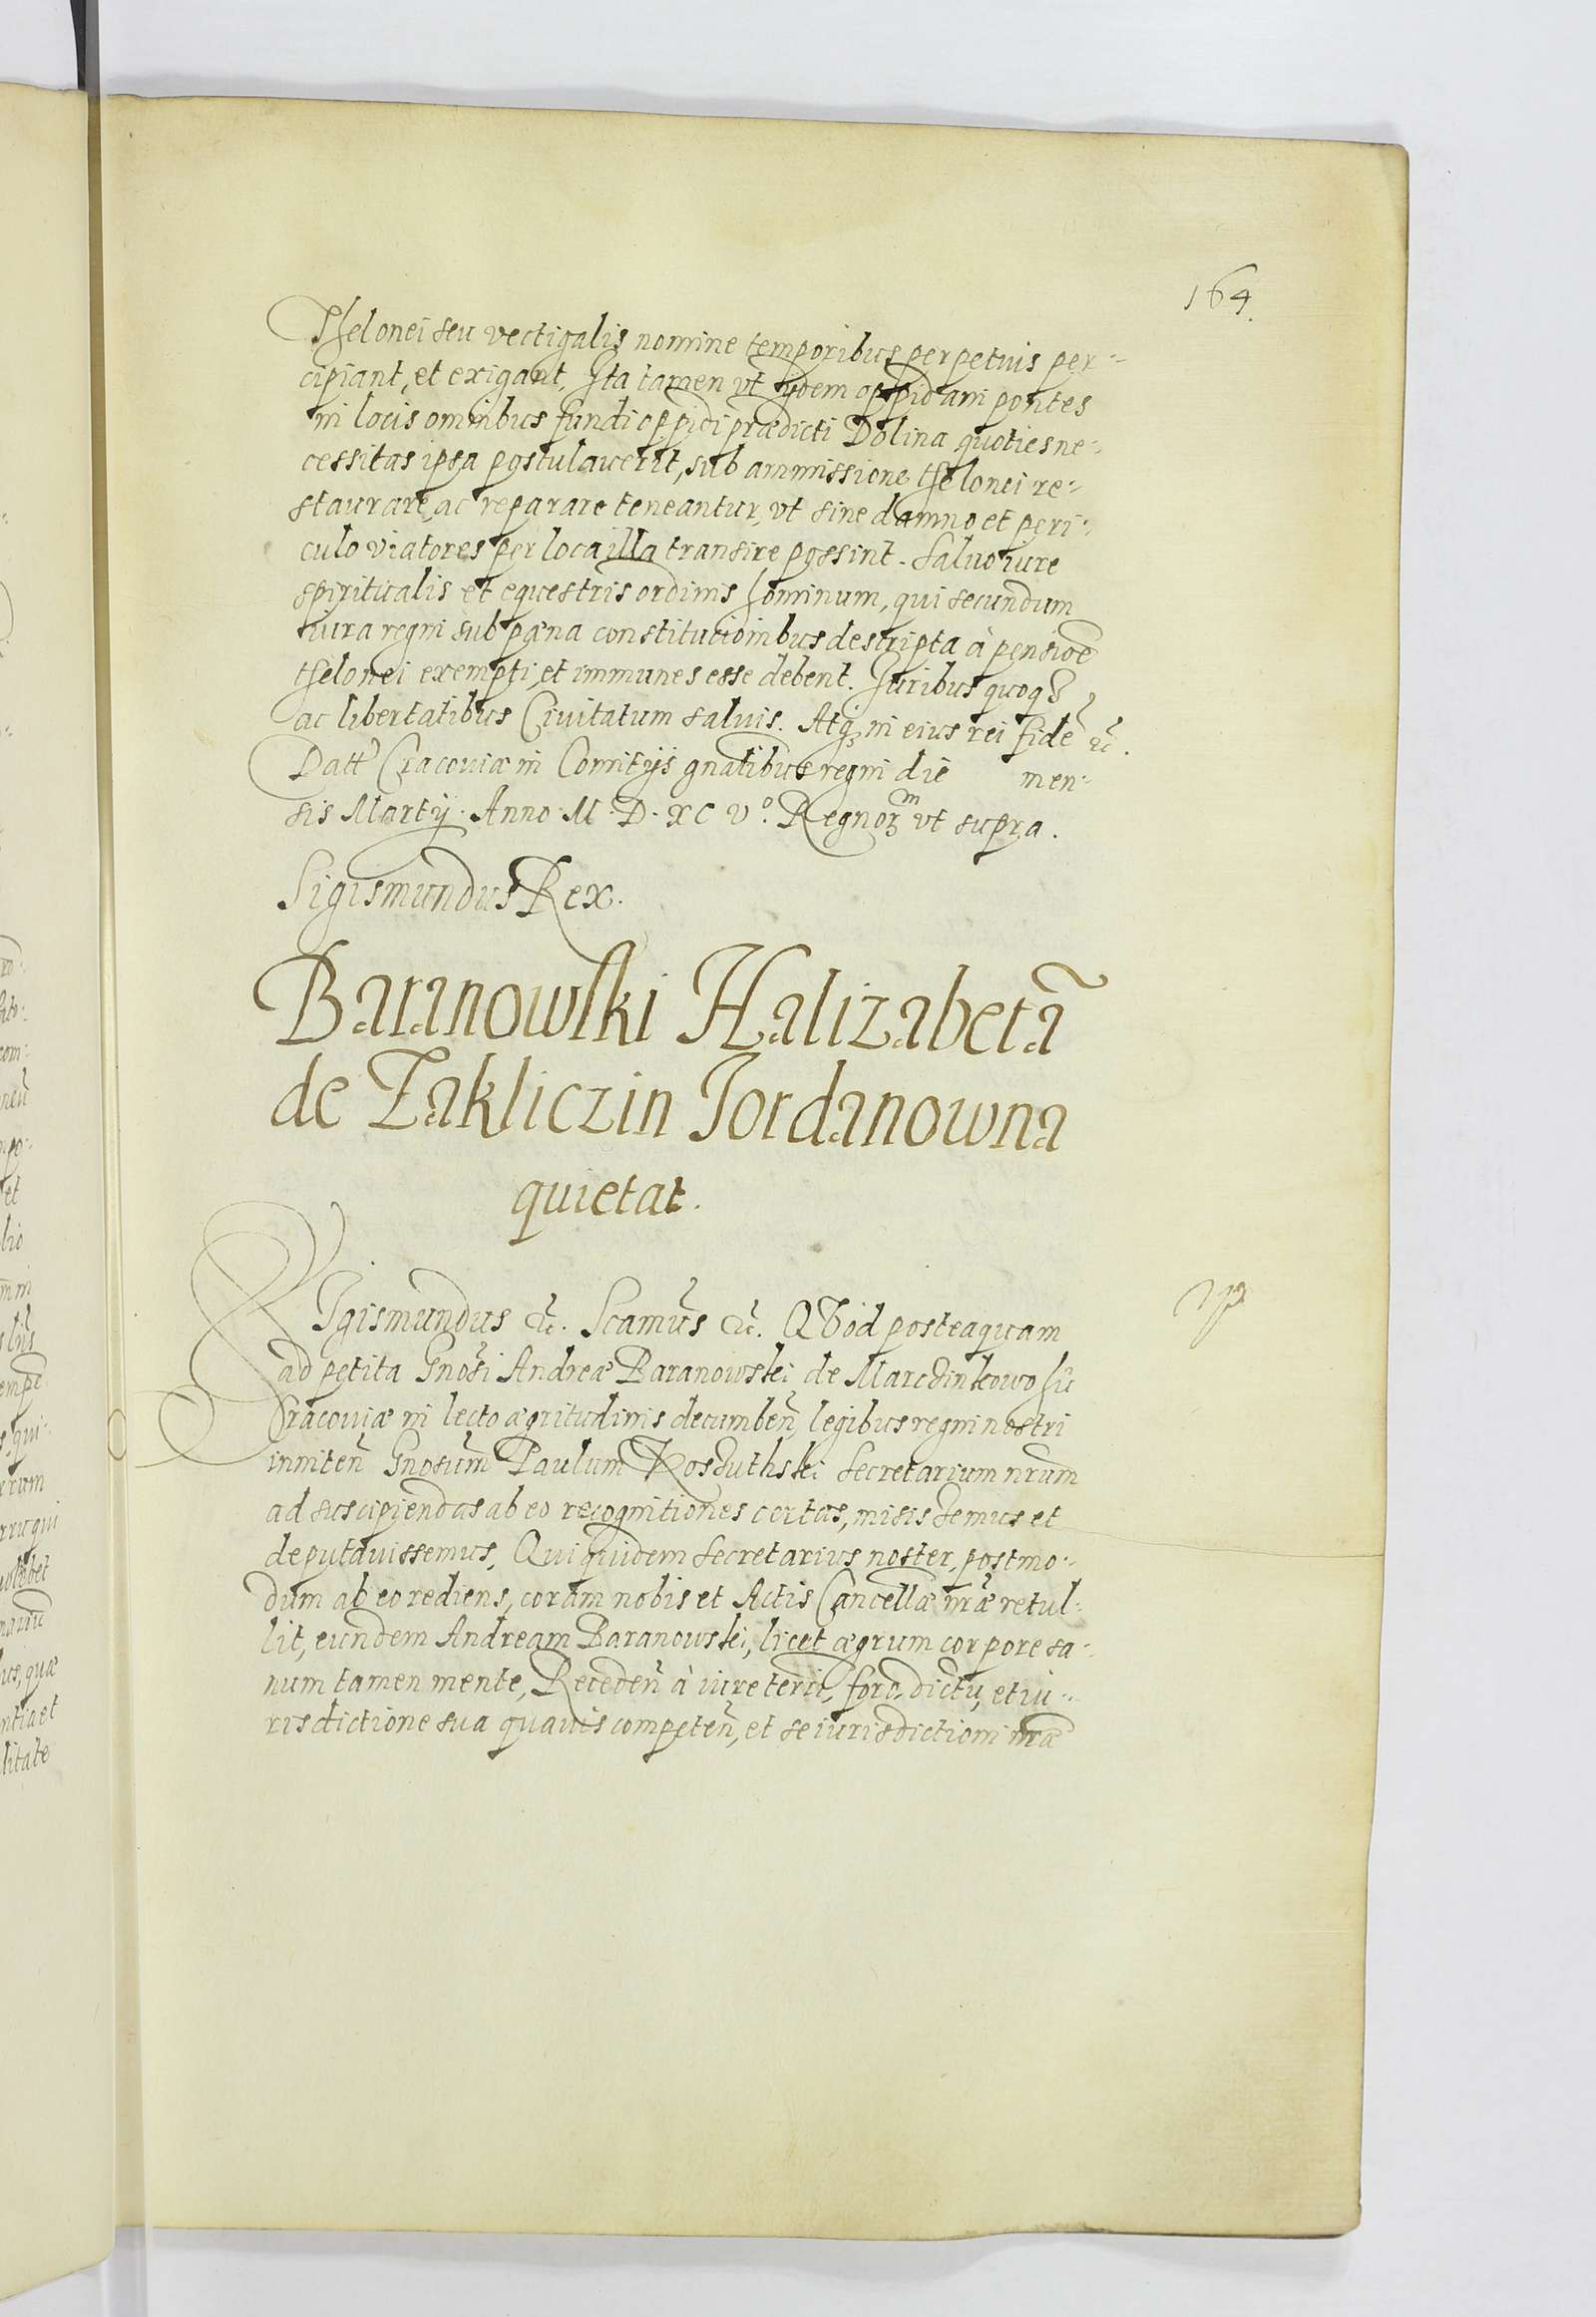 164.
Thelonei seu vectigalis nomine temporibus perpetuis per-
cipiant, et exigant, Ita tamen vt ijdem oppidani pontes
in locis omnibus fundi oppidi prædicti Dolina quoties ne-
cessitas ipsa postulaverit, sub ammissione thelonei re-
staurare, ac reparare teneantur, vt sine damno et peri-
culo viatores per loca illa transire possint. Saluo iure
spiritualis et equestris ordinis hominum, qui secundum
iura regni sub pœna constitutionibus descripta à pensioē
thelonei exempti, et immunes esse debent. Iuribus quoqȝ
ac libertatibus Civitatum saluis. Atqȝ in eius rei fidē ꝛc̃.
Datt Cracouiæ in Comitijs gnalibus regni die men-
sis Martij. Anno. M. D. XC Vº. Regnoꝝ m vt supra.
Sigismundus Rex.
Baranowski Halizabetã
de Zakliczin Jordanowna
quietat.
SIgismundus ꝛc̃. Scamũs ꝛc̃. QVod posteaquam
ad petita Gnosi Andreæ Baranowski de Marczinkowo hic
Cracouiæ in lecto ægritudinis decumbeñ, legibus regni nostri
inniteñ Gnosum Paulum secretarium nrum
ad suscipiendas ab eo recognitiones certas, misissemus et
deputauissemus, Qui quidem secretarius noster, postmo-
dum ab eo rediens, coram nobis et Actis Cancellæ nræ retul-
lit, eundem Andream Baranowski, licet ægrum corpore sa-
num tamen mente, Recedeñ à iure terri, foro, dictu, et iu-
risdictione sua quauis competeñ, et se iurisdictioni nræ